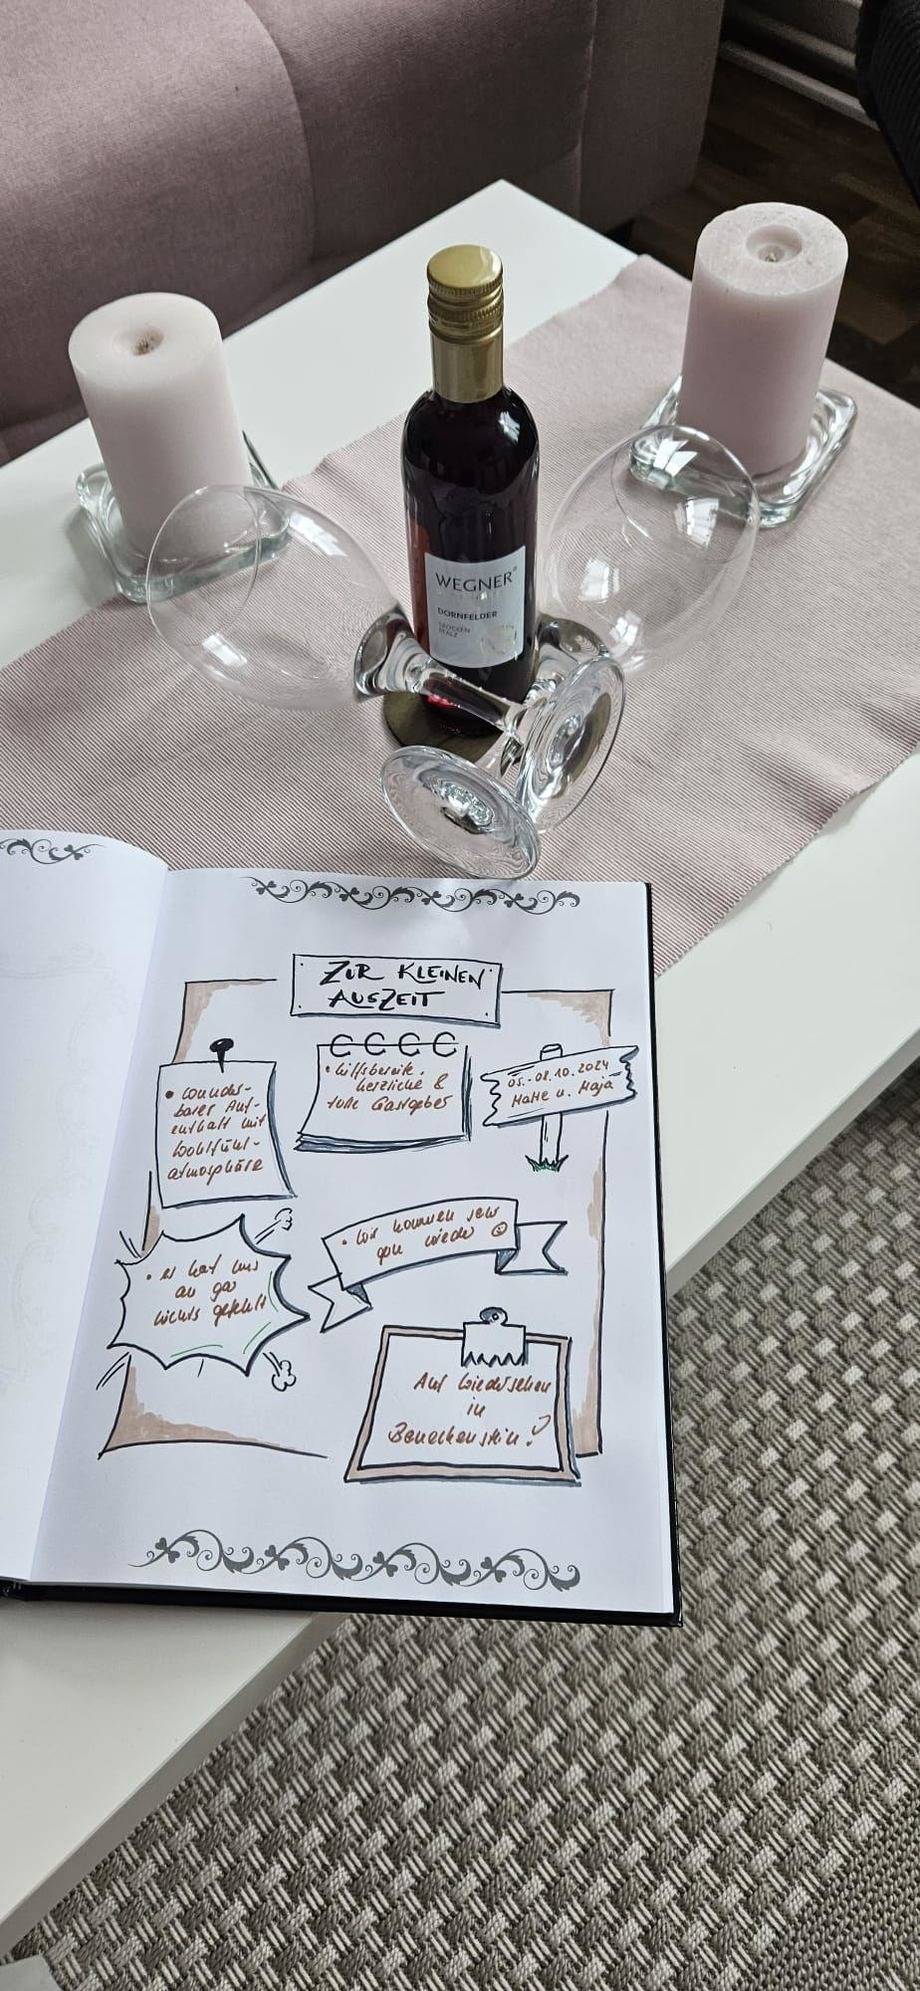 WEGNER
DORNFELDER
TROCKEN
PFALZ
ZUR KLEINEN
AUSZEIT
• wunder-
barer Auf-
enthalt mit
Wohlfühl-
atmosphäre
• hilfsbereite,
herzliche &
tolle Gastgeber
05.-08.10.2024
Malte u. Maja
• es hat uns
an gar
nichts gefehlt
• Wir kommen sehr
gern wieder ☺
Auf Wiedersehen
in
Beneckenstein!